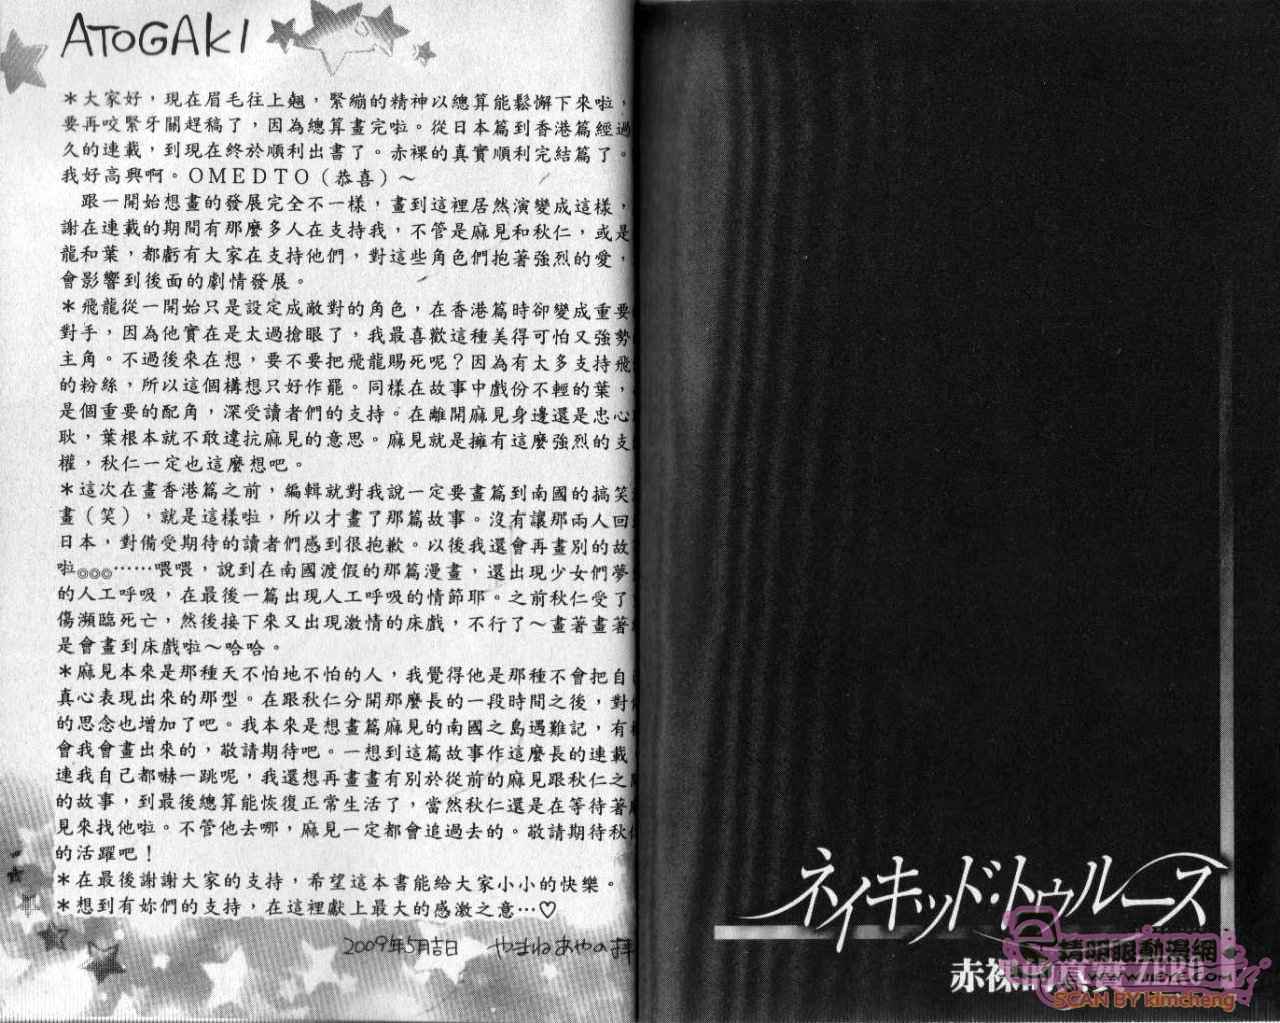 ATOGAKI
＊大家好，現在眉毛往上翹，緊繃的精神以總算能鬆懈下來啦，
要再咬緊牙關趕稿了，因為總算畫完啦。從日本篇到香港篇經過
久的連載，到現在終於順利出書了。赤裸的真實順利完結篇了。
我好高興啊。OMEDTO（恭喜）～
跟一開始想畫的發展完全不一樣，畫到這裡居然演變成這樣，
謝在連載的期間有那麼多人在支持我，不管是麻見和秋仁，或是
龍和葉，都虧有大家在支持他們，對這些角色們抱著強烈的愛，
會影響到後面的劇情發展。
＊飛龍從一開始只是設定成敵對的角色，在香港篇時卻變成重要
對手，因為他實在是太過搶眼了，我最喜歡這種美得可怕又強勢
主角。不過後來在想，要不要把飛龍賜死呢？因為有太多支持飛
的粉絲，所以這個構想只好作罷。同樣在故事中戲份不輕的葉，
是個重要的配角，深受讀者們的支持。在離開麻見身邊還是忠心
耿，葉根本就不敢違抗麻見的意思。麻見就是擁有這麼強烈的支
權，秋仁一定也這麼想吧。
＊這次在畫香港篇之前，編輯就對我說一定要畫篇到南國的搞笑
畫（笑），就是這樣啦，所以才畫了那篇故事。沒有讓那兩人回
日本，對備受期待的讀者們感到很抱歉。以後我還會再畫別的故
啦◎◎◎……喂喂，說到在南國渡假的那篇漫畫，還出現少女們夢
的人工呼吸，在最後一篇出現人工呼吸的情節耶。之前秋仁受了
傷瀕臨死亡，然後接下來又出現激情的床戲，不行了～畫著畫著
是會畫到床戲啦～哈哈。
＊麻見本來是那種天不怕地不怕的人，我覺得他是那種不會把自
真心表現出來的那型。在跟秋仁分開那麼長的一段時間之後，對
的思念也增加了吧。我本來是想畫篇麻見的南國之島遇難記，有
會我會畫出來的，敬請期待吧。一想到這篇故事作這麼長的連載
連我自己都嚇一跳呢，我還想再畫畫有別於從前的麻見跟秋仁之
的故事，到最後總算能恢復正常生活了，當然秋仁還是在等待著
見來找他啦。不管他去哪，麻見一定都會追過去的。敬請期待秋
的活躍吧！
＊在最後謝謝大家的支持，希望這本書能給大家小小的快樂。
＊想到有妳們的支持，在這裡獻上最大的感激之意…♡
2009年5月吉日 やまねあやの拝
ネイキッド・トゥルース
赤裸的真實
精明眼動漫網
SCAN BY kimcheng